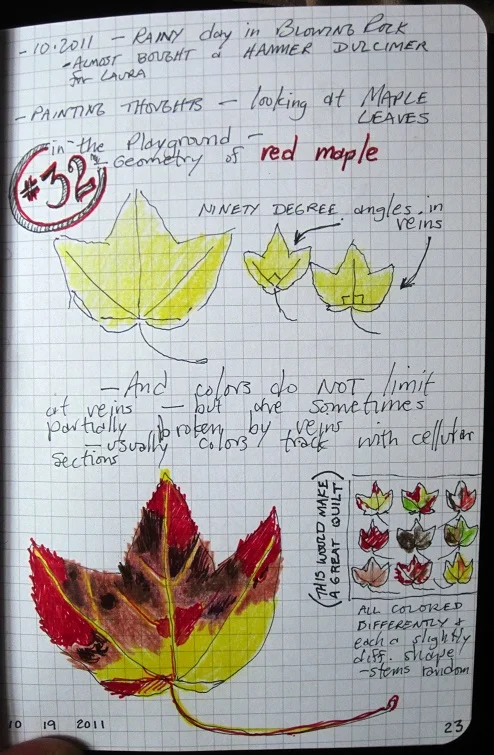 -10.2011 - RAINY day in BLOWING ROCK
-ALMOST BOUGHT a HAMMER DULCIMER
for LAURA
-PAINTING THOUGHTS - looking at MAPLE
LEAVES
in the Playground -
#32
- Geometry of red maple
NINETY DEGREE angles in
veins
- And colors do NOT limit
at veins - but are sometimes
partially broken by veins
- usually colors track with cellular
sections
(THIS WOULD MAKE
A GREAT QUILT)
ALL COLORED
DIFFERENTLY &
each a slightly
diff. shape
- stems random
10 19 2011
23